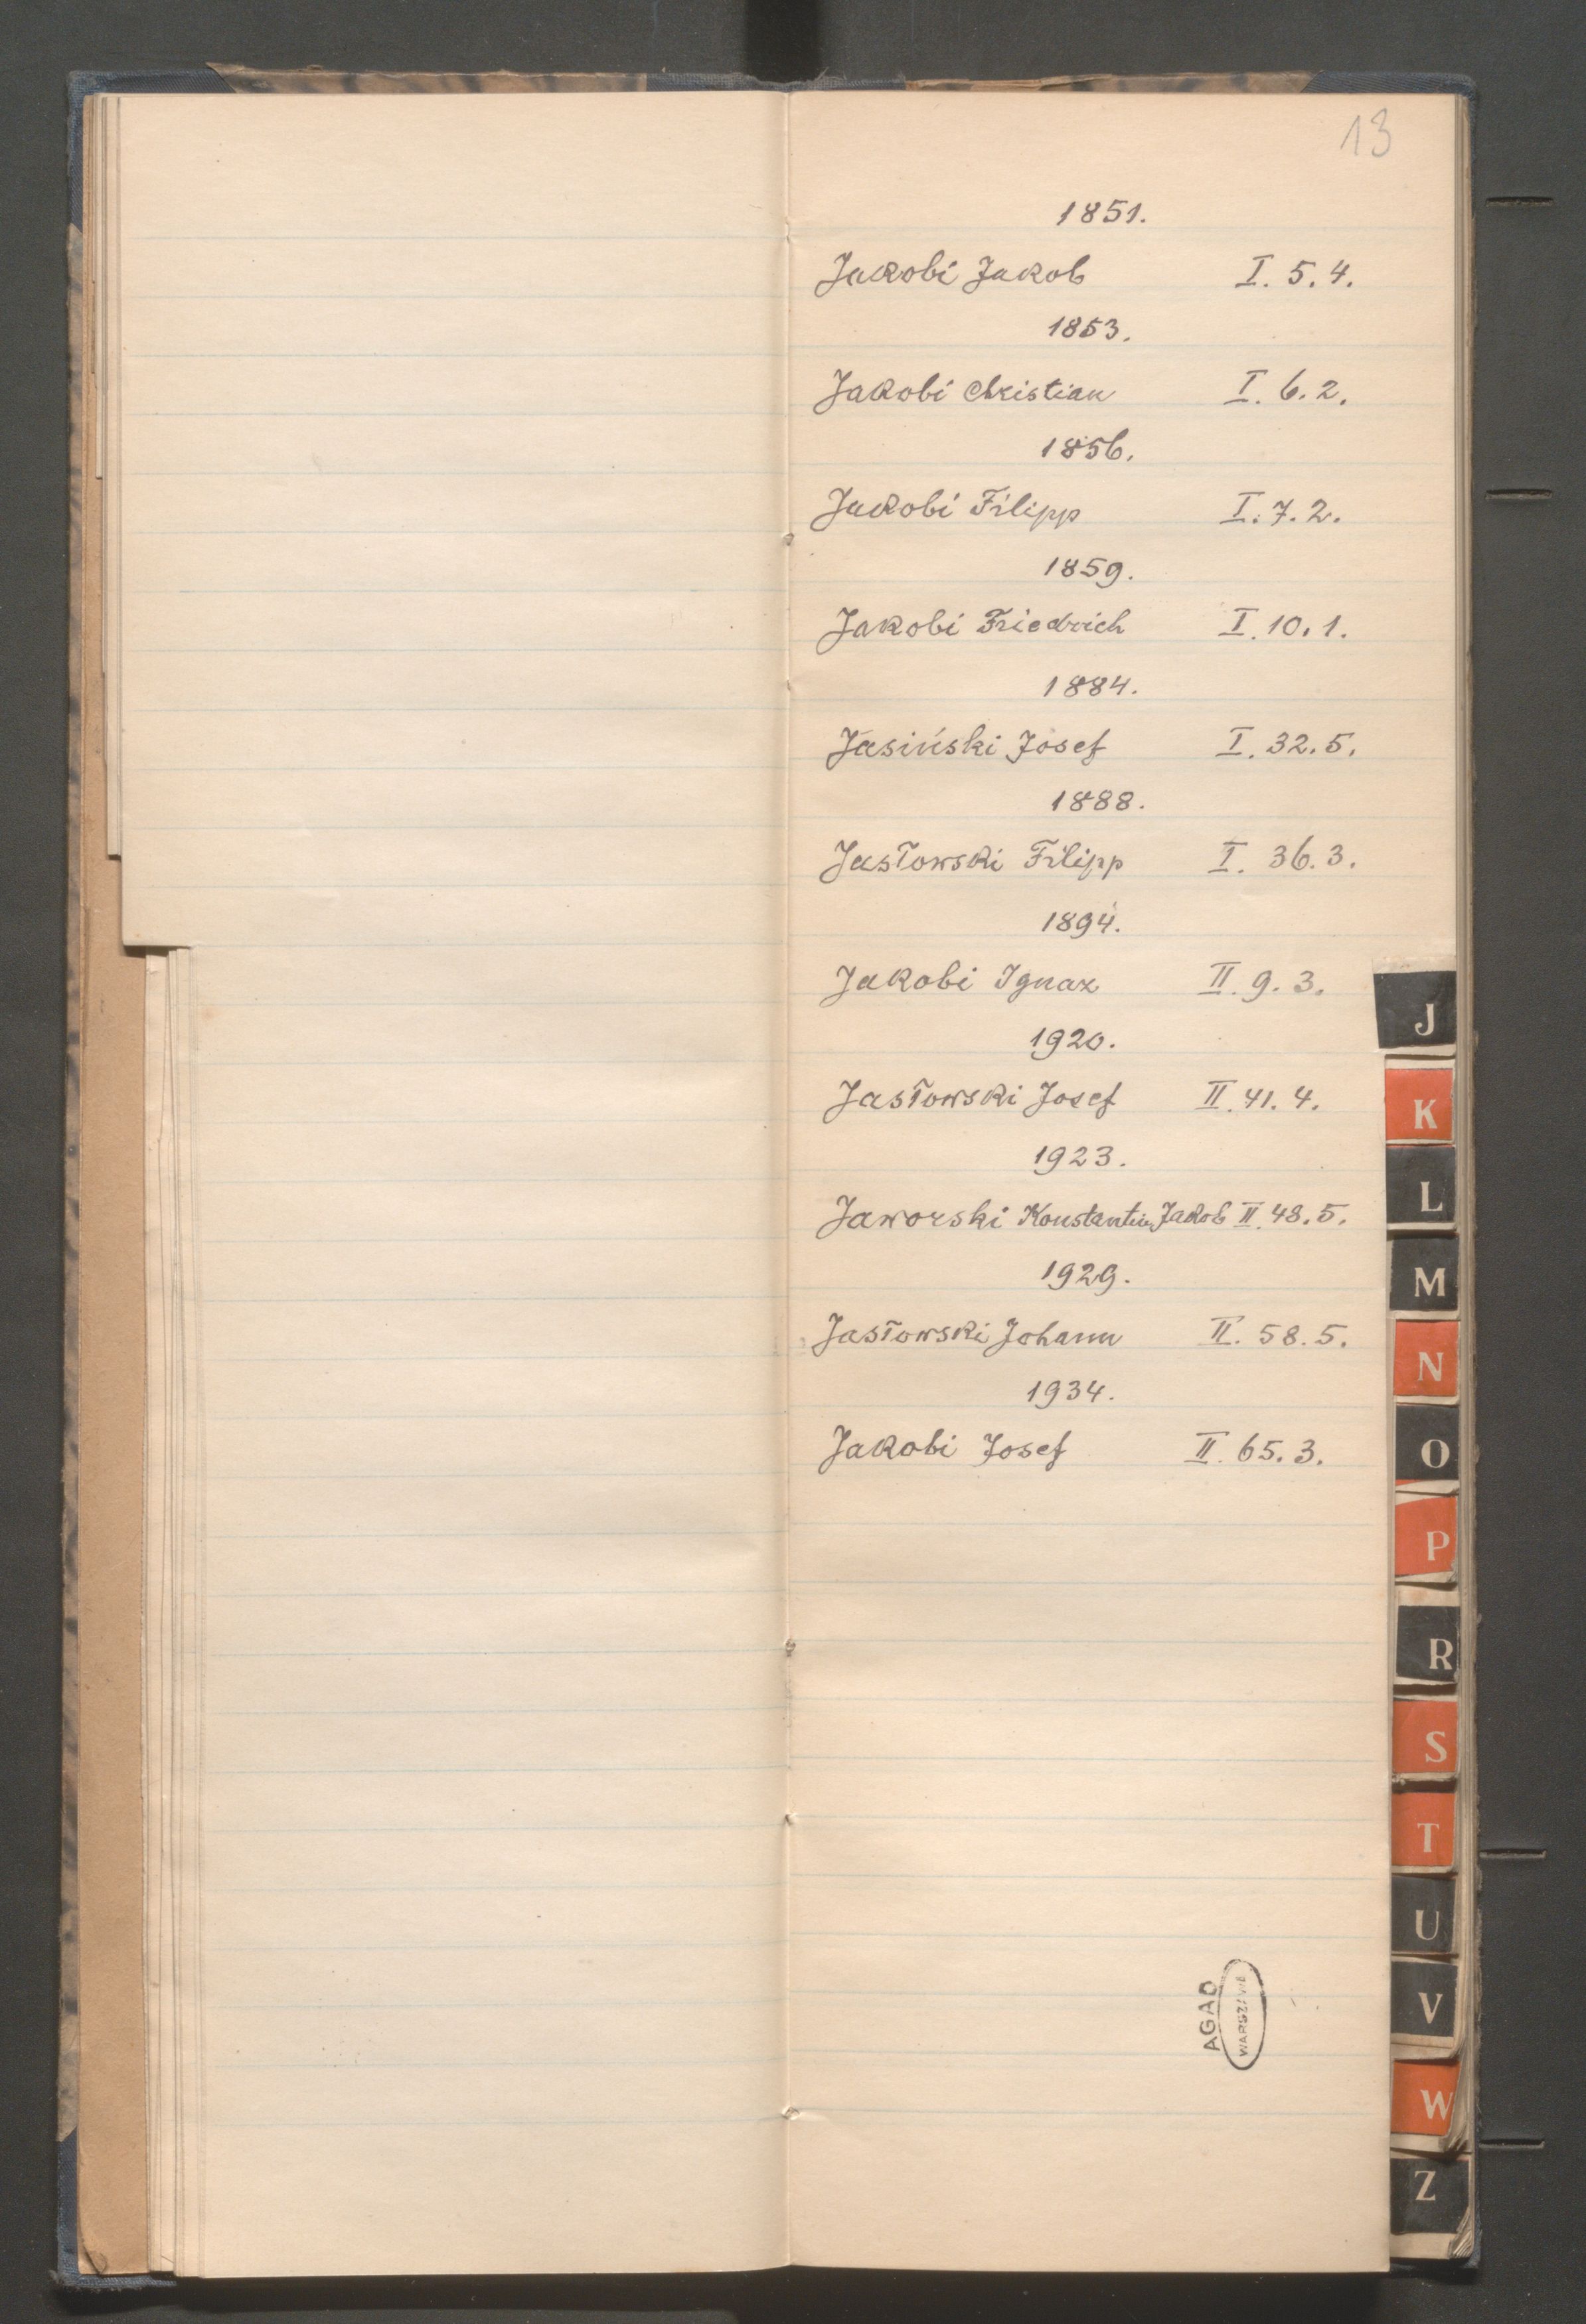 13
1851.
Jakobi Jakob I. 5. 4.
1853.
Jakobi Christian I. 6. 2.
1856.
Jakobi Filipp I. 7. 2.
1859.
Jakobi Friedrich I. 10. 1.
1884.
Jasiński Josef I. 32. 5.
1888.
Jasłowski Filipp I. 36. 3.
1894.
Jakobi Ignaz II. 9. 3.
1920.
Jasłowski Josef II. 41. 4.
1923.
Jaworski Konstantin Jakob II. 48. 5.
1929.
Jasłowski Johann II. 58. 5.
1934.
Jakobi Josef II. 65. 3.
AGAD
WARSZAWA
J
K
L
M
N
O
P
R
S
T
U
V
W
Z